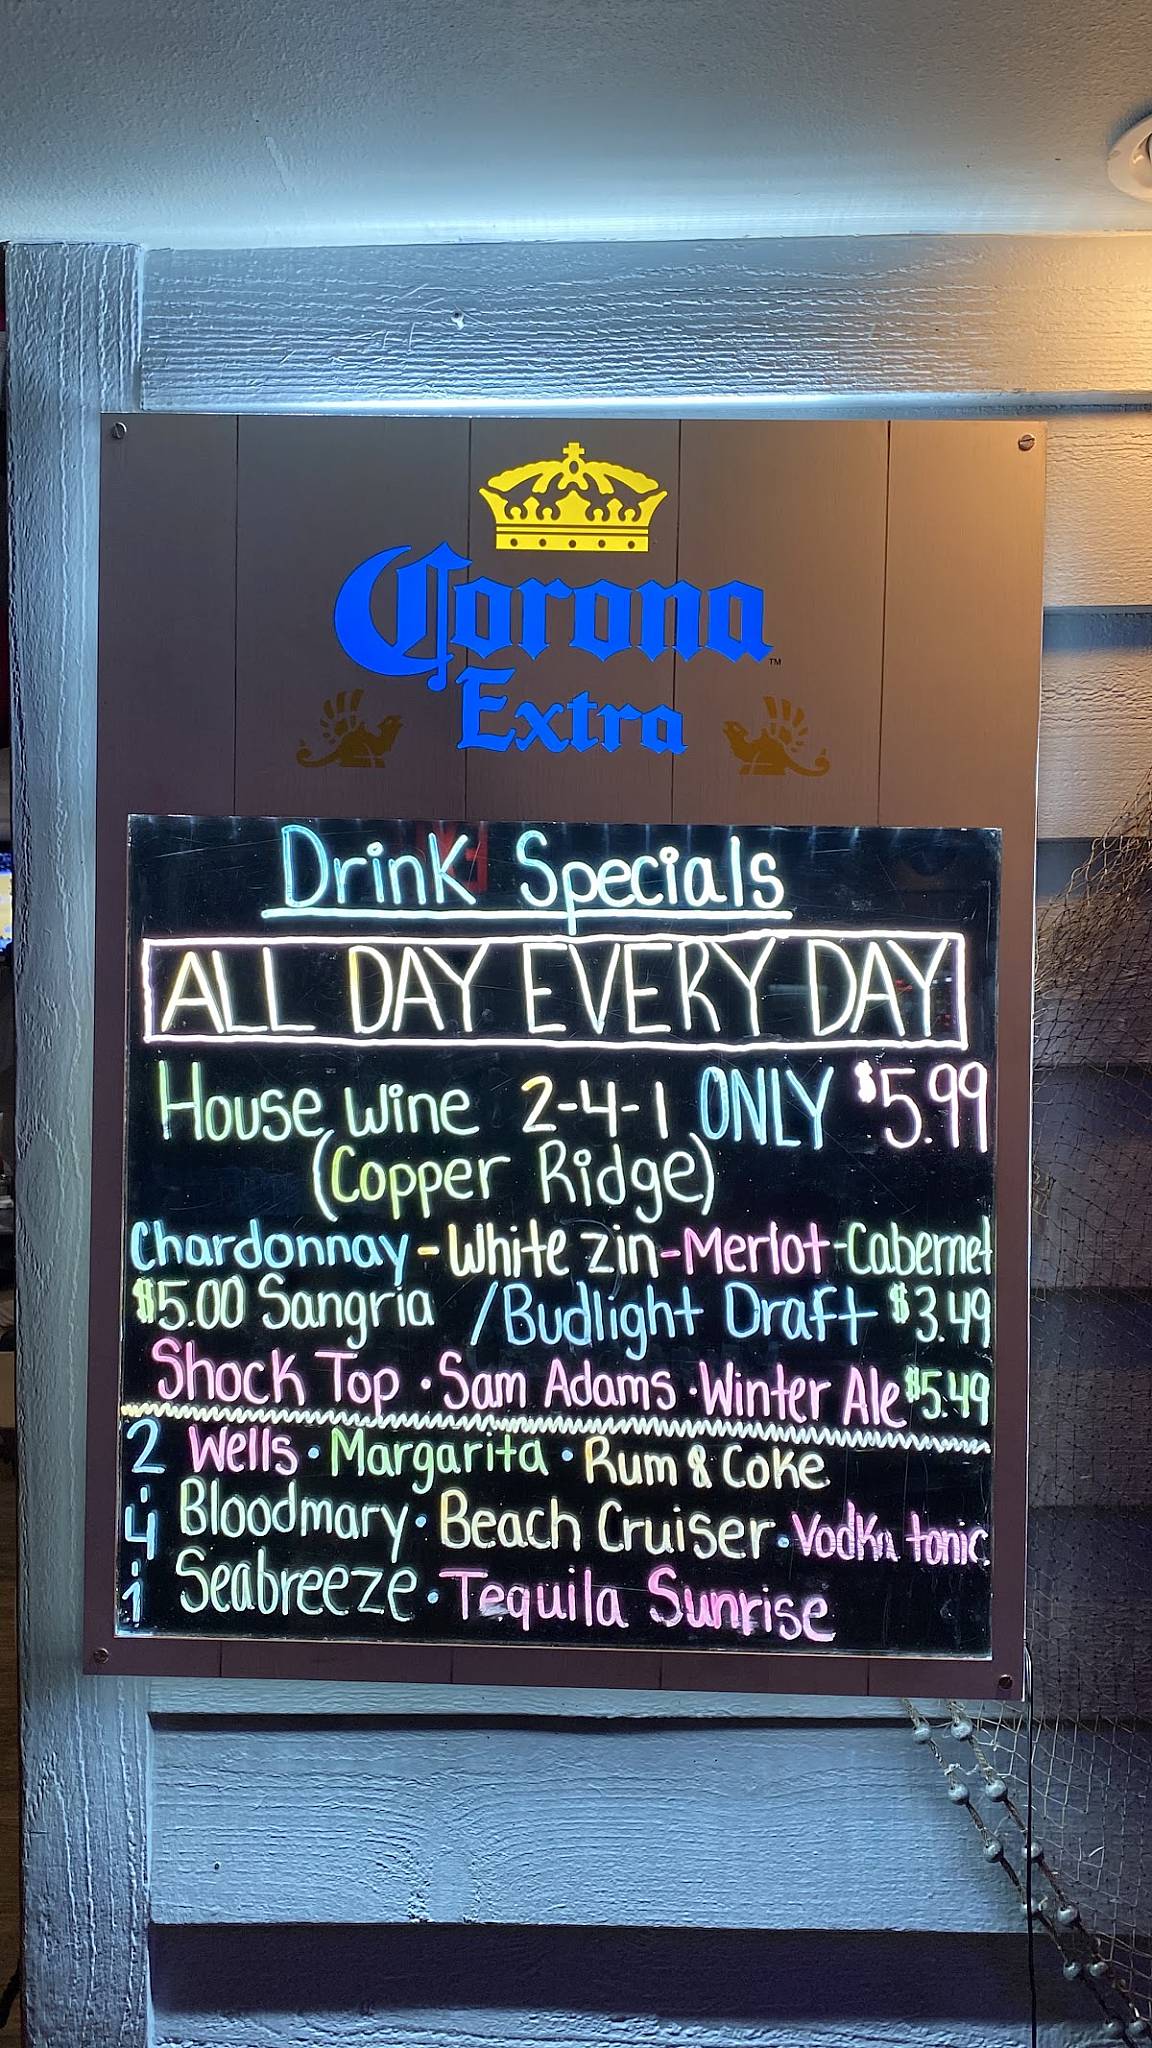 Corona
™
Extra
Drink Specials
ALL DAY EVERY DAY
House Wine 2-4-1 ONLY $5.99
(Copper Ridge)
Chardonnay-White Zin-Merlot-Cabernet
$5.00 Sangria /Budlight Draft $3.49
Shock Top · Sam Adams · Winter Ale $5.49
2 Wells · Margarita · Rum & Coke
4 Bloodmary · Beach Cruiser · Vodka tonic
1 Seabreeze · Tequila Sunrise